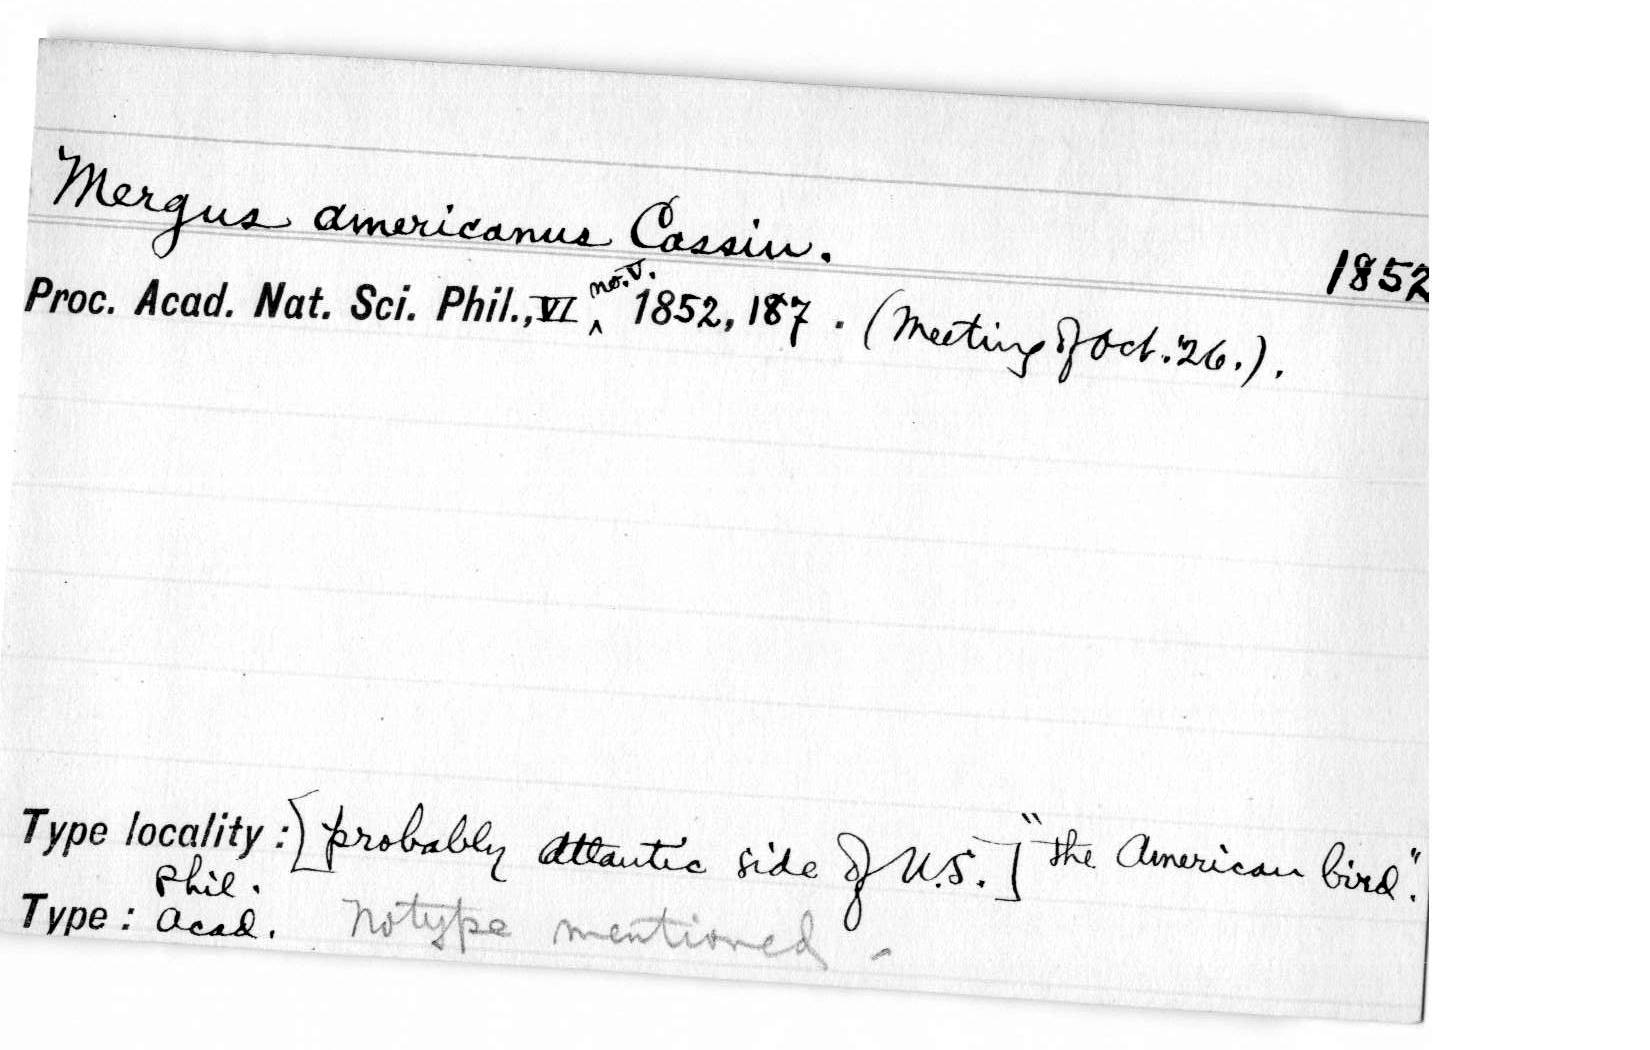 Mergus americanus Cassin.
1852
Proc. Acad. Nat. Sci. Phil., VI no. V. 1852, 187. (Meeting of Oct. 26.).
Type locality: [probably Atlantic side of U.S.] "the American bird".
Type: Phil. Acad. No type mentioned -